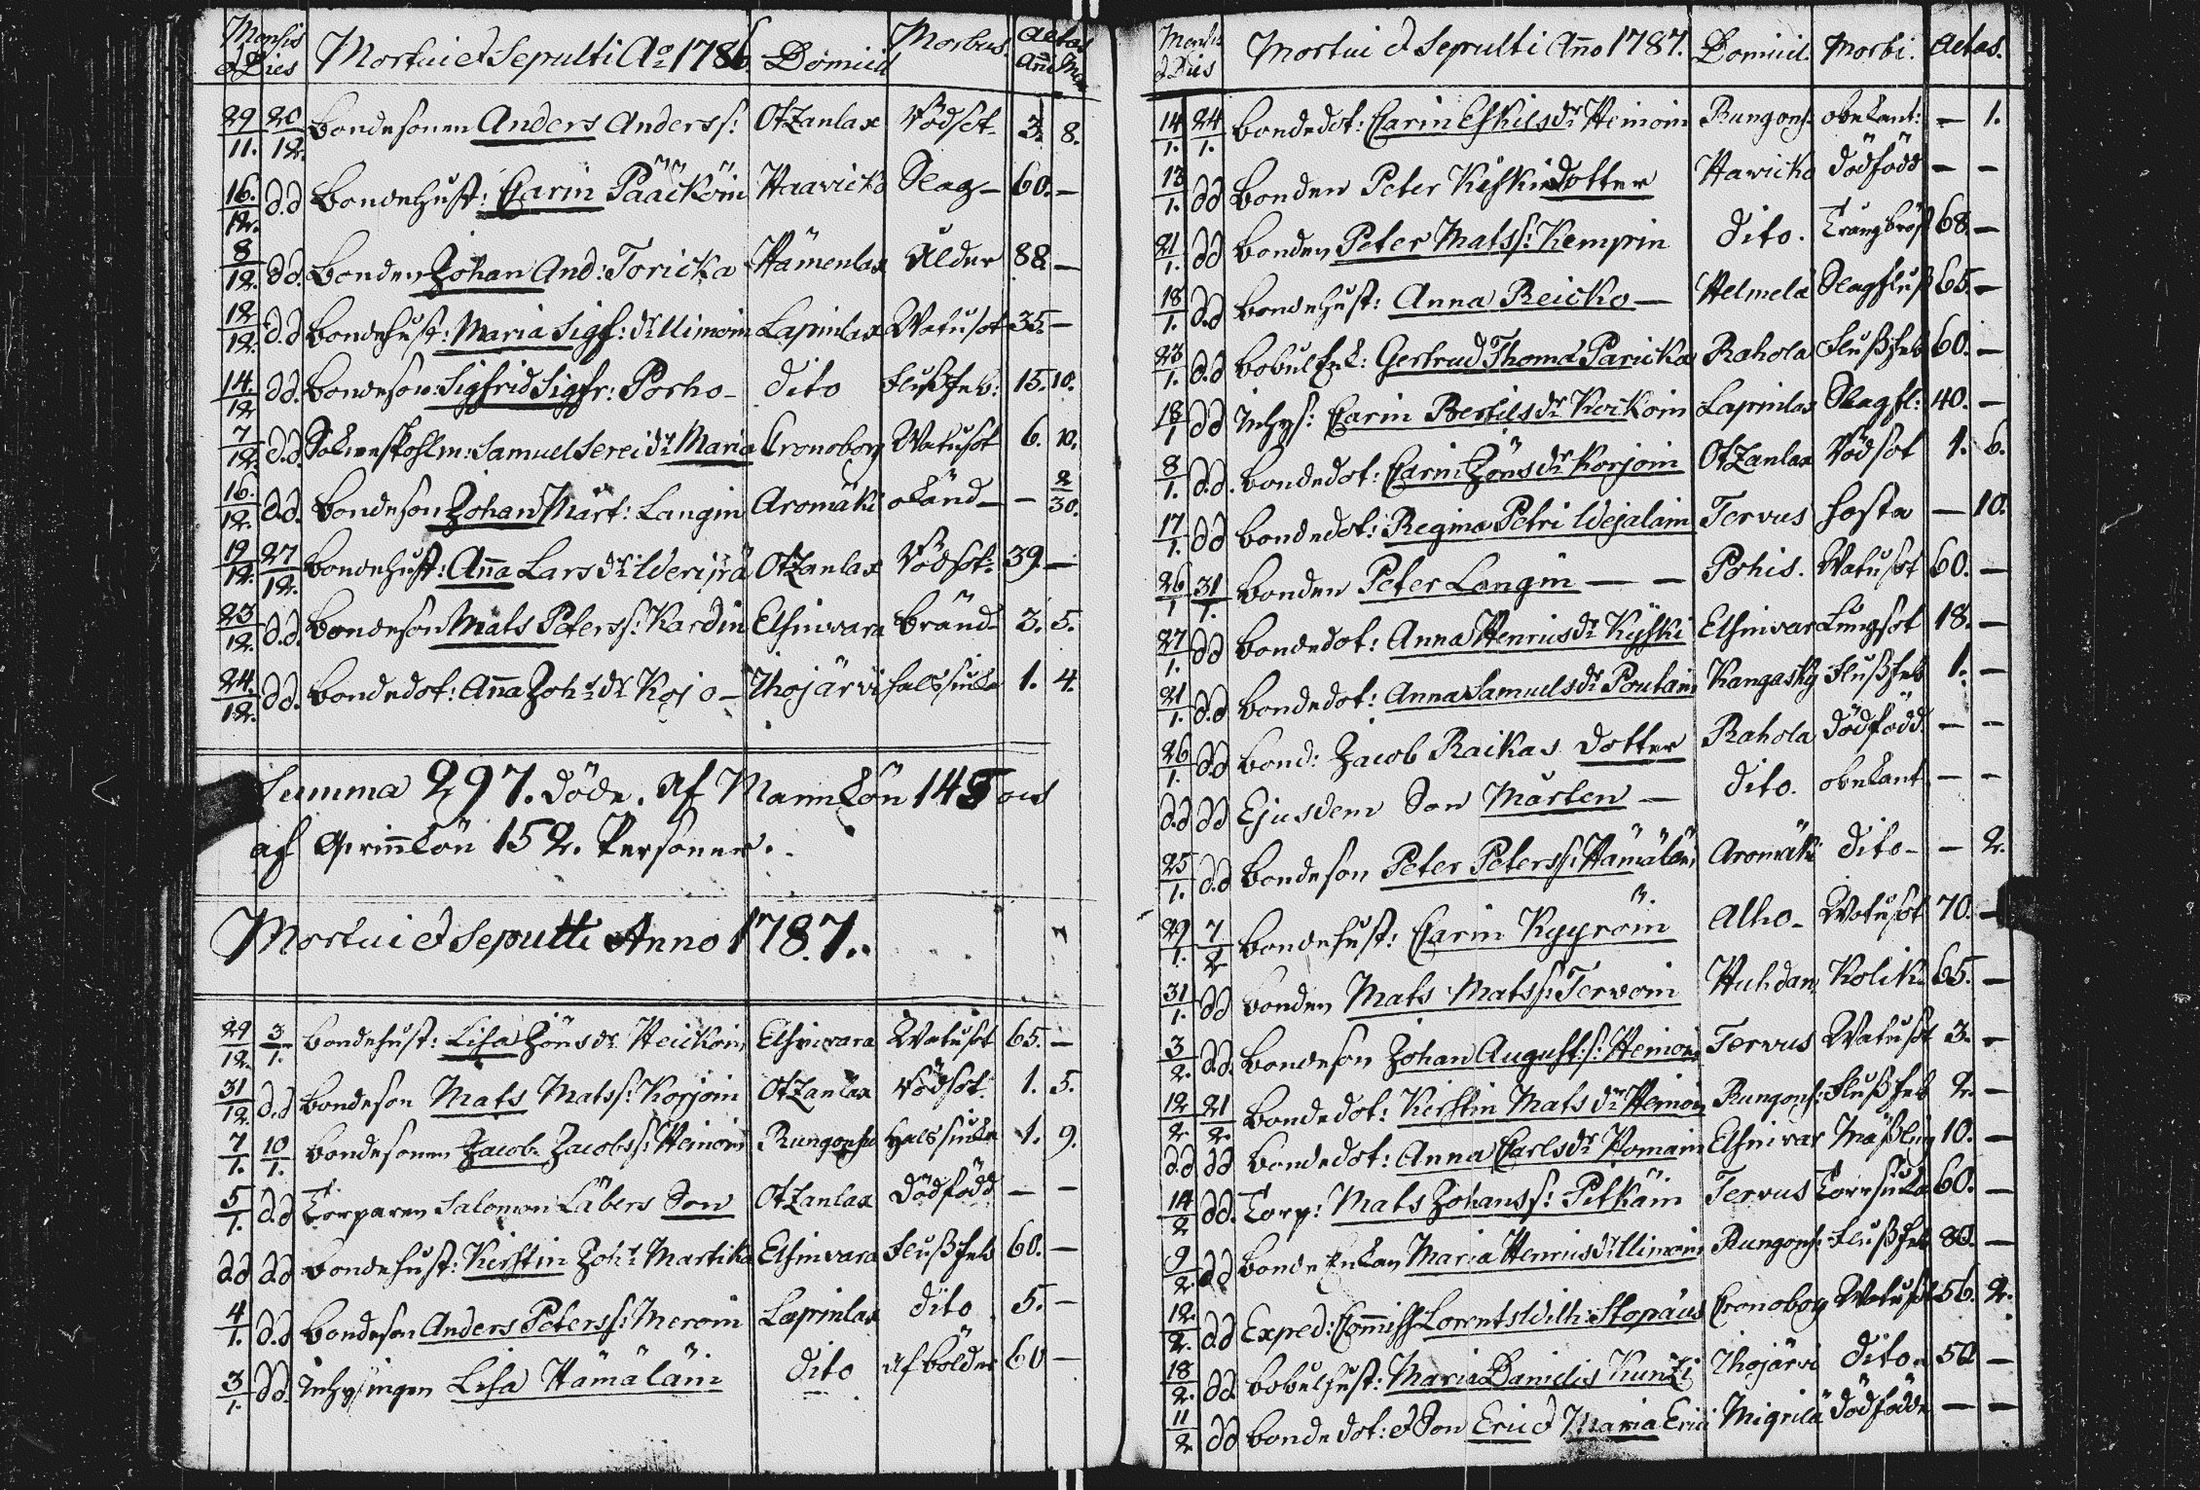 Mensis & Dies Mortui et Sepulti Ao 1786. Domicil Morbus. aetas Ann: Mens
29/11. 20/12. Bondesonen Anders Anderss: Otzanlax Rödsot 3. 8.
16./12. d.d Bondehust: Carin Pääcköin Haavicko Slag – 60. –
8/12. d.d. Bonden Johan And: Toricka Hämenlax Ålder 88. –
12/12. d.d Bondehust: Maria Sigf: dr Ilimoin Lapinlax Watusot 35. –
14./12 dd. Bondeson: Sigfrid Sigfr: Porho – dito Flussfeb: 15. 10.
7/12. d.d. Samuel Serei dr Maria Cronoborg Watusot 6. 10.
16./12. d.d. Bondeson Johan Mårt: Langin Aromäki okänd – – 2/30.
19/12. 27/12. Bondehust: Anna Lars dr Otzanlax Rödsot: 39. –
23/12. d.d. Bondeson Mats Peterss: Kardin Elsinwara bränd 3. 5.
24./12. dd. Bondedot: Anna Joh: dr Kojo – Ihojärvi halssiuka 1. 4.
Summa 297. döde. Af Mankön 145 och
af Qvinnkön 152. Personer.
Mortui et Sepulti Anno 1787.
29/12. 3/1. Bondehust: Lisa Jöns dr Heickoin Elsinwara Watusot 65. –
31/12. d.d Bondeson Mats Matss: Korjoin Otzanlax Rödsot. 1. 5.
7/1. 10/1. Bondesonen Jacob Jacobss: Heinoin Rungonsu Halssiuka 1. 9.
5/1. d.d Torparen Salomon Läbers Son Otzanlax dödfödd – –
dd dd Bondehust: Kirstin Joh: Martika Elsinwara Flussfeb 60. –
4/1. d.d Bondeson Anders Peterss: Meroin Lapinlax dito 5. –
3/1. dd. Inhysingen Lisa Hämäläin dito af bölder 60 –
Mensis & Dies Mortui et Sepulti Año 1787. Domicil. Morbi. Aetas.
14/1. 24/1. Bondedot: Carin Eskils dr Heinoin Rungons: obekant: – 1.
13/1. dd Bonden Peter Kiskin dotter Havicko dödfödd – –
21/1. dd Bonden Peter Matss: Kemppin dito. Trångbröst 68. –
18/1. d.d Bondehust: Anna Reicko – Helmelä Slagfluss 65. –
23/1. d.d Gertrud Thoma Paricka Rahola Flussfeb 60. –
18/1 dd Inhys: Carin Bertils dr Kockoin Lapinlax Slagfl: 40. –
8/1. d.d. Bondedot: Carin Jöns dr Korjoin Otzanlax Rödsot 1. 6.
17/1. dd Bondedot: Regina Petri Wejalain Tervus hosta – 10.
26/1 31/1. Bonden Peter Langin – – Pohis. Watusot 60. –
27/1. dd Bondedot: Anna Henrics dr Kyski Elsinvar Lungsot 18. –
21/1. d.d Bondedot: Anna Samuels dr Poutain Kangasky Flussfeb 1. –
26/1. dd Bond: Jacob Raikas dotter Rahola dödfödd – –
d.d dd Ejusdem Son Mårten – dito. obekant – –
25/1. d.d Bondeson Peter Peterss: Hämäläin Aromäki dito – – 2.
29/1. 7/2 Bondehust: Carin Kyyröin Alho – Watusot 70. –
31/1. dd Bonden Mats Matss: Tervoin Huhdan Kolik 65. –
3/2. d.d. Bondeson Johan August: s: Heinoin Tervus Watusot 3. –
12/2. 21/2. Bondedot: Kirstin Mats dr Heinoin Rungons: Flussfeb 2. –
d.d dd Bondedot: Anna Carls dr Homain Elsinvar Mässling 10. –
14/2 dd. Torp: Mats Johanss: Pitkäin Tervus Torrsiuka 60. –
9/2. dd Bonde Enkan Maria Henrics dr Ilimoin Rungons: Flussfeb 80. –
12./2. dd Exped: Commiss Lorents Wilh: Stopæus Cronoborg Watusot 56. 2.
18/2. dd. Bobulhust: Maria Danielis Kunzi Ihojärvi dito 50 –
11/2 dd Bondedot: et Son Eric et Maria Erici Migrilä dödfödde – –